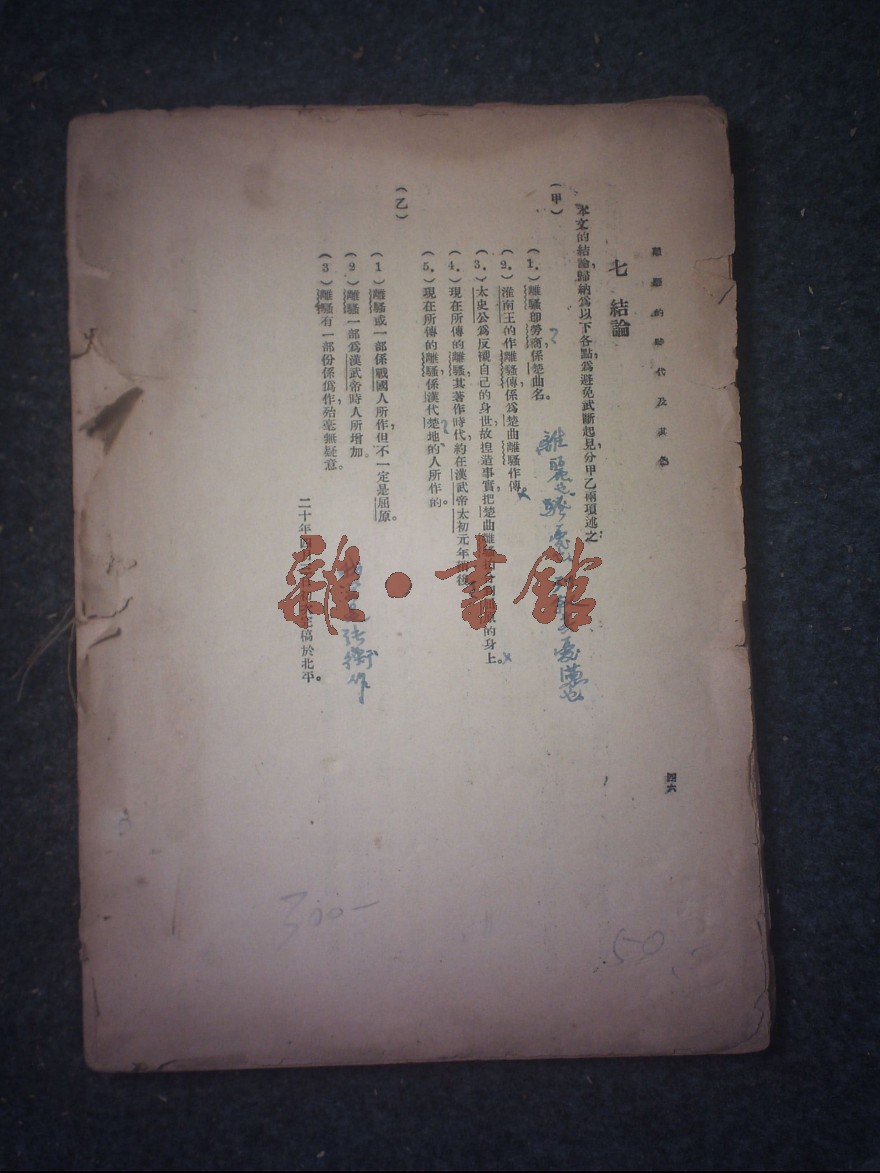 離騷的時代及其他
四六
七 結論
本文的結論,歸納為以下各點,為避免武斷起見,分甲乙兩項述之:
(甲)
(1.)離騷即勞商,係楚曲名。
?
(2.)淮南王的作離騷傳,係為楚曲離騷作傳。
(3.)太史公為反襯自己的身世,故捏造事實,把楚曲離騷的身上。
(4.)現在所傳的離騷,其著作時代,約在漢武帝太初元年
(5.)現在所傳的離騷,係漢代楚地的人所作的。
(乙)
(1)離騷或一部係戰國人所作,但不一定是屈原。
(2)離騷一部為漢武帝時人所增加。
(3)離騷有一部份係偽作,殆毫無疑意。
二十年四完稿於北平。
離
憂也
張衡作
雜·書館
300-
50